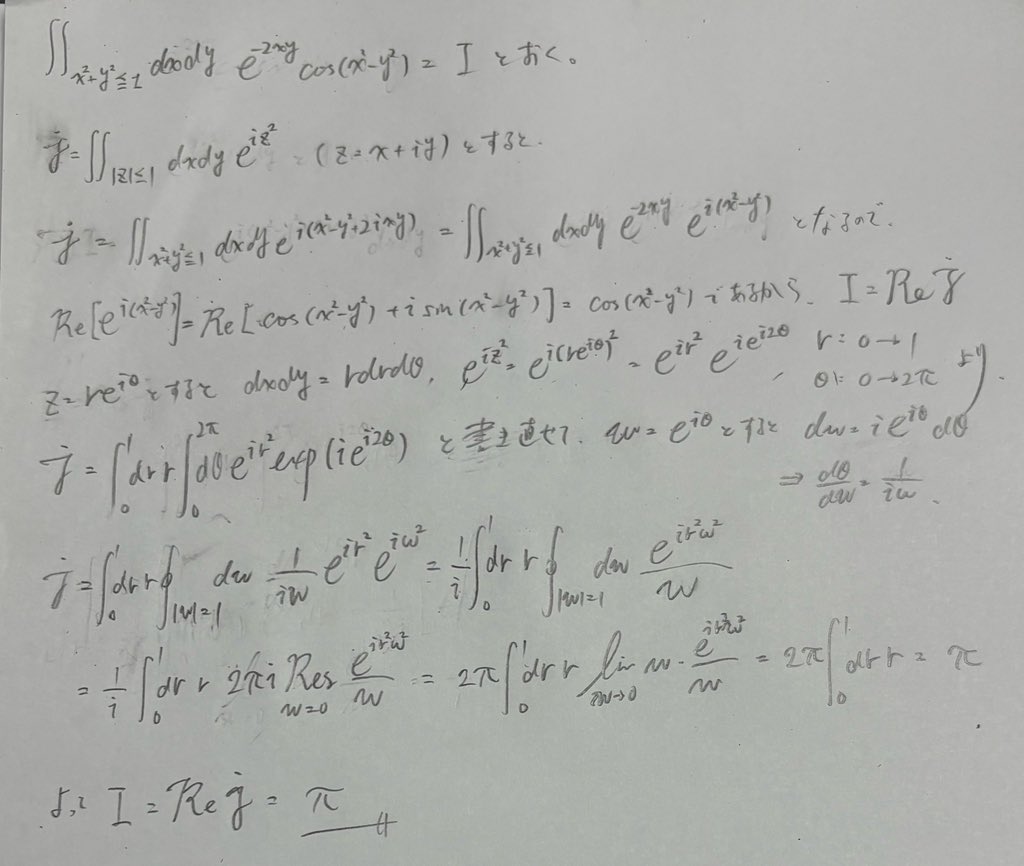 ∬_{x²+y²≦1} dxdy e^{-2xy} cos(x²-y²) = I とおく。
j = ∬_{|z|≤1} dxdy e^{iz²} (z = x + iy) とすると.
j = ∬_{x²+y²≦1} dxdy e^{i(x²-y²+2ixy)} = ∬_{x²+y²≦1} dxdy e^{-2xy} e^{i(x²-y²)} となるので.
Re[e^{i(x²-y²)}] = Re[cos(x²-y²) + i sin(x²-y²)] = cos(x²-y²) であるから. I = Re j
z = re^{iθ} とすると dxdy = rdrdθ, e^{iz²} = e^{i(re^{iθ})²} = e^{ir²} e^{ie^{i2θ}}, r: 0→1 θ: 0→2π より
j = ∫_0^1 dr r ∫_0^{2π} dθ e^{ir²} exp(ie^{i2θ}) と書き直せて. w = e^{iθ} とすると dw = ie^{iθ} dθ
⇒ dθ/dw = 1/iw.
j = ∫_0^1 dr r ∮_{|w|=1} dw 1/iw e^{ir²} e^{iw²} = 1/i ∫_0^1 dr r ∮_{|w|=1} dw e^{ir²w²}/w
= 1/i ∫_0^1 dr r 2πi Res_{w=0} e^{ir²w²}/w = 2π ∫_0^1 dr r lim_{w→0} w · e^{ir²w²}/w = 2π ∫_0^1 dr r = π
よって I = Re j = π